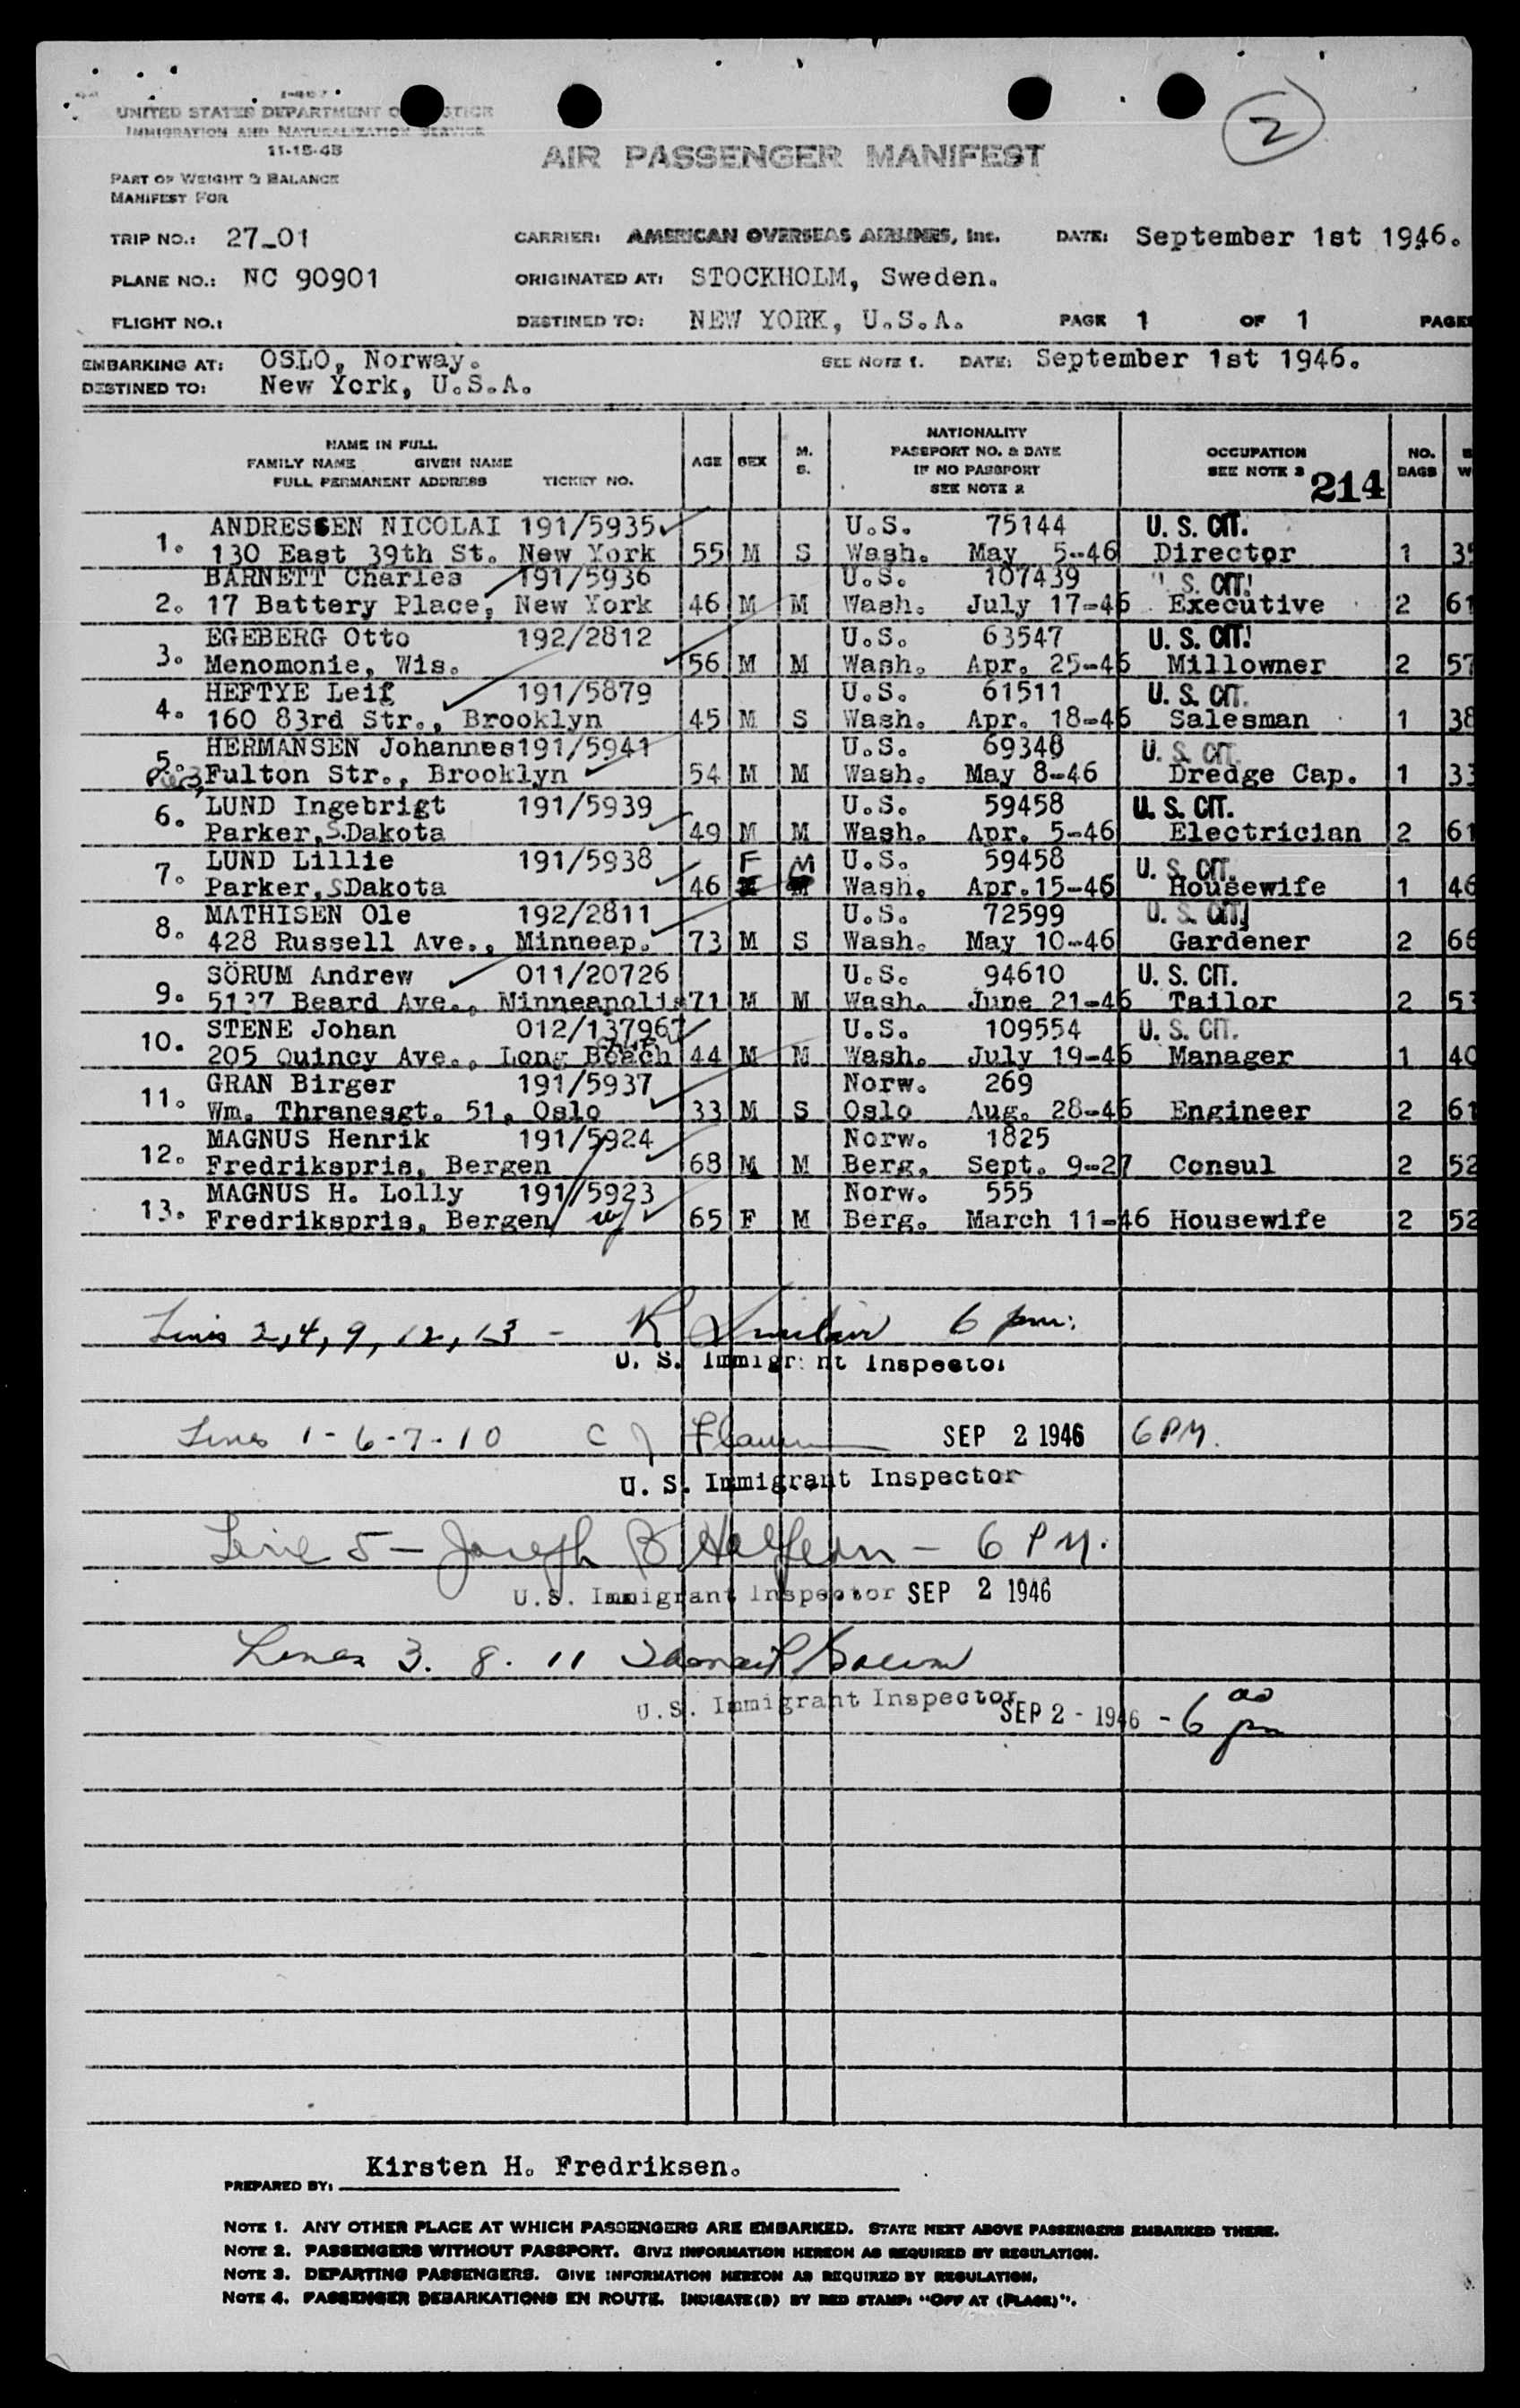 2
UNITED STATES DEPARTMENT OF JUSTICE
IMMIGRATION AND NATURALIZATION SERVICE
11-15-45
AIR PASSENGER MANIFEST
PART OF WEIGHT & BALANCE
MANIFEST FOR
TRIP NO.: 27-01 CARRIER: AMERICAN OVERSEAS AIRLINES, Inc. DATE: September 1st 1946.
PLANE NO.: NC 90901 ORIGINATED AT: STOCKHOLM, Sweden.
FLIGHT NO.: DESTINED TO: NEW YORK, U.S.A. PAGE 1 OF 1 PAGES
EMBARKING AT: OSLO, Norway. SEE NOTE 1. DATE: September 1st 1946.
DESTINED TO: New York, U.S.A.
NAME IN FULL
FAMILY NAME GIVEN NAME
FULL PERMANENT ADDRESS TICKET NO. AGE SEX M. S. NATIONALITY PASSPORT NO. & DATE IF NO PASSPORT SEE NOTE 2 OCCUPATION SEE NOTE 3 214 NO. BAGS
ANDRESSEN NICOLAI 191/5935 U.S. 75144 U. S. CIT.
1. 130 East 39th St. New York 55 M S Wash. May 5-46 Director 1 35
BARNETT Charles 191/5936 U.S. 107439 U. S. CIT.
2. 17 Battery Place, New York 46 M M Wash. July 17-46 Executive 2 61
EGEBERG Otto 192/2812 U.S. 63547 U. S. CIT.
3. Menomonie, Wis. 56 M M Wash. Apr. 25-46 Millowner 2 57
HEFTYE Leif 191/5879 U.S. 61511 U. S. CIT.
4. 160 83rd Str., Brooklyn 45 M S Wash. Apr. 18-46 Salesman 1 38
HERMANSEN Johannes 191/5941 U.S. 69348 U. S. CIT.
5. Fulton Str., Brooklyn 54 M M Wash. May 8-46 Dredge Cap. 1 33
LUND Ingebrigt 191/5939 U.S. 59458 U. S. CIT.
6. Parker, S.Dakota 49 M M Wash. Apr. 5-46 Electrician 2 61
LUND Lillie 191/5938 F M U.S. 59458 U. S. CIT.
7. Parker, S.Dakota 46 Wash. Apr.15-46 Housewife 1 46
MATHISEN Ole 192/2811 U.S. 72599 U. S. CIT.
8. 428 Russell Ave., Minneap. 73 M S Wash. May 10-46 Gardener 2 66
SÖRUM Andrew 011/20726 U.S. 94610 U. S. CIT.
9. 5137 Beard Ave., Minneapolis 71 M M Wash. June 21-46 Tailor 2 53
STENE Johan 012/137967 U.S. 109554 U. S. CIT.
10. 205 Quincy Ave., Long Beach Calif. 44 M M Wash. July 19-46 Manager 1 40
GRAN Birger 191/5937 Norw. 269
11. Wm. Thranesgt. 51, Oslo 33 M S Oslo Aug. 28-46 Engineer 2 61
MAGNUS Henrik 191/5924 Norw. 1825
12. Fredrikspris, Bergen 68 M M Berg. Sept. 9-27 Consul 2 52
MAGNUS H. Lolly 191/5923 Norw. 555
13. Fredrikspris, Bergen 65 F M Berg. March 11-46 Housewife 2 52
Lines 2, 4, 9, 12, 13 - K Sinclair 6 pm.
U. S. Immigrant Inspector
Lines 1-6-7-10 C J SEP 2 1946 6 PM.
U. S. Immigrant Inspector
Line 5 - Joseph B Halfern - 6 PM.
U.S. Immigrant Inspector SEP 2 1946
Lines 3. 8. 11
U.S. Immigrant Inspector SEP 2 - 1946 - 6 00 pm
Kirsten H. Fredriksen.
PREPARED BY:
NOTE 1. ANY OTHER PLACE AT WHICH PASSENGERS ARE EMBARKED. STATE NEXT ABOVE PASSENGERS EMBARKED THERE.
NOTE 2. PASSENGERS WITHOUT PASSPORT. GIVE INFORMATION HEREON AS REQUIRED BY REGULATION.
NOTE 3. DEPARTING PASSENGERS. GIVE INFORMATION HEREON AS REQUIRED BY REGULATION.
NOTE 4. PASSENGER DEBARKATIONS EN ROUTE. INDICATE(D) BY RED STAMP: "OFF AT (PLACE)".